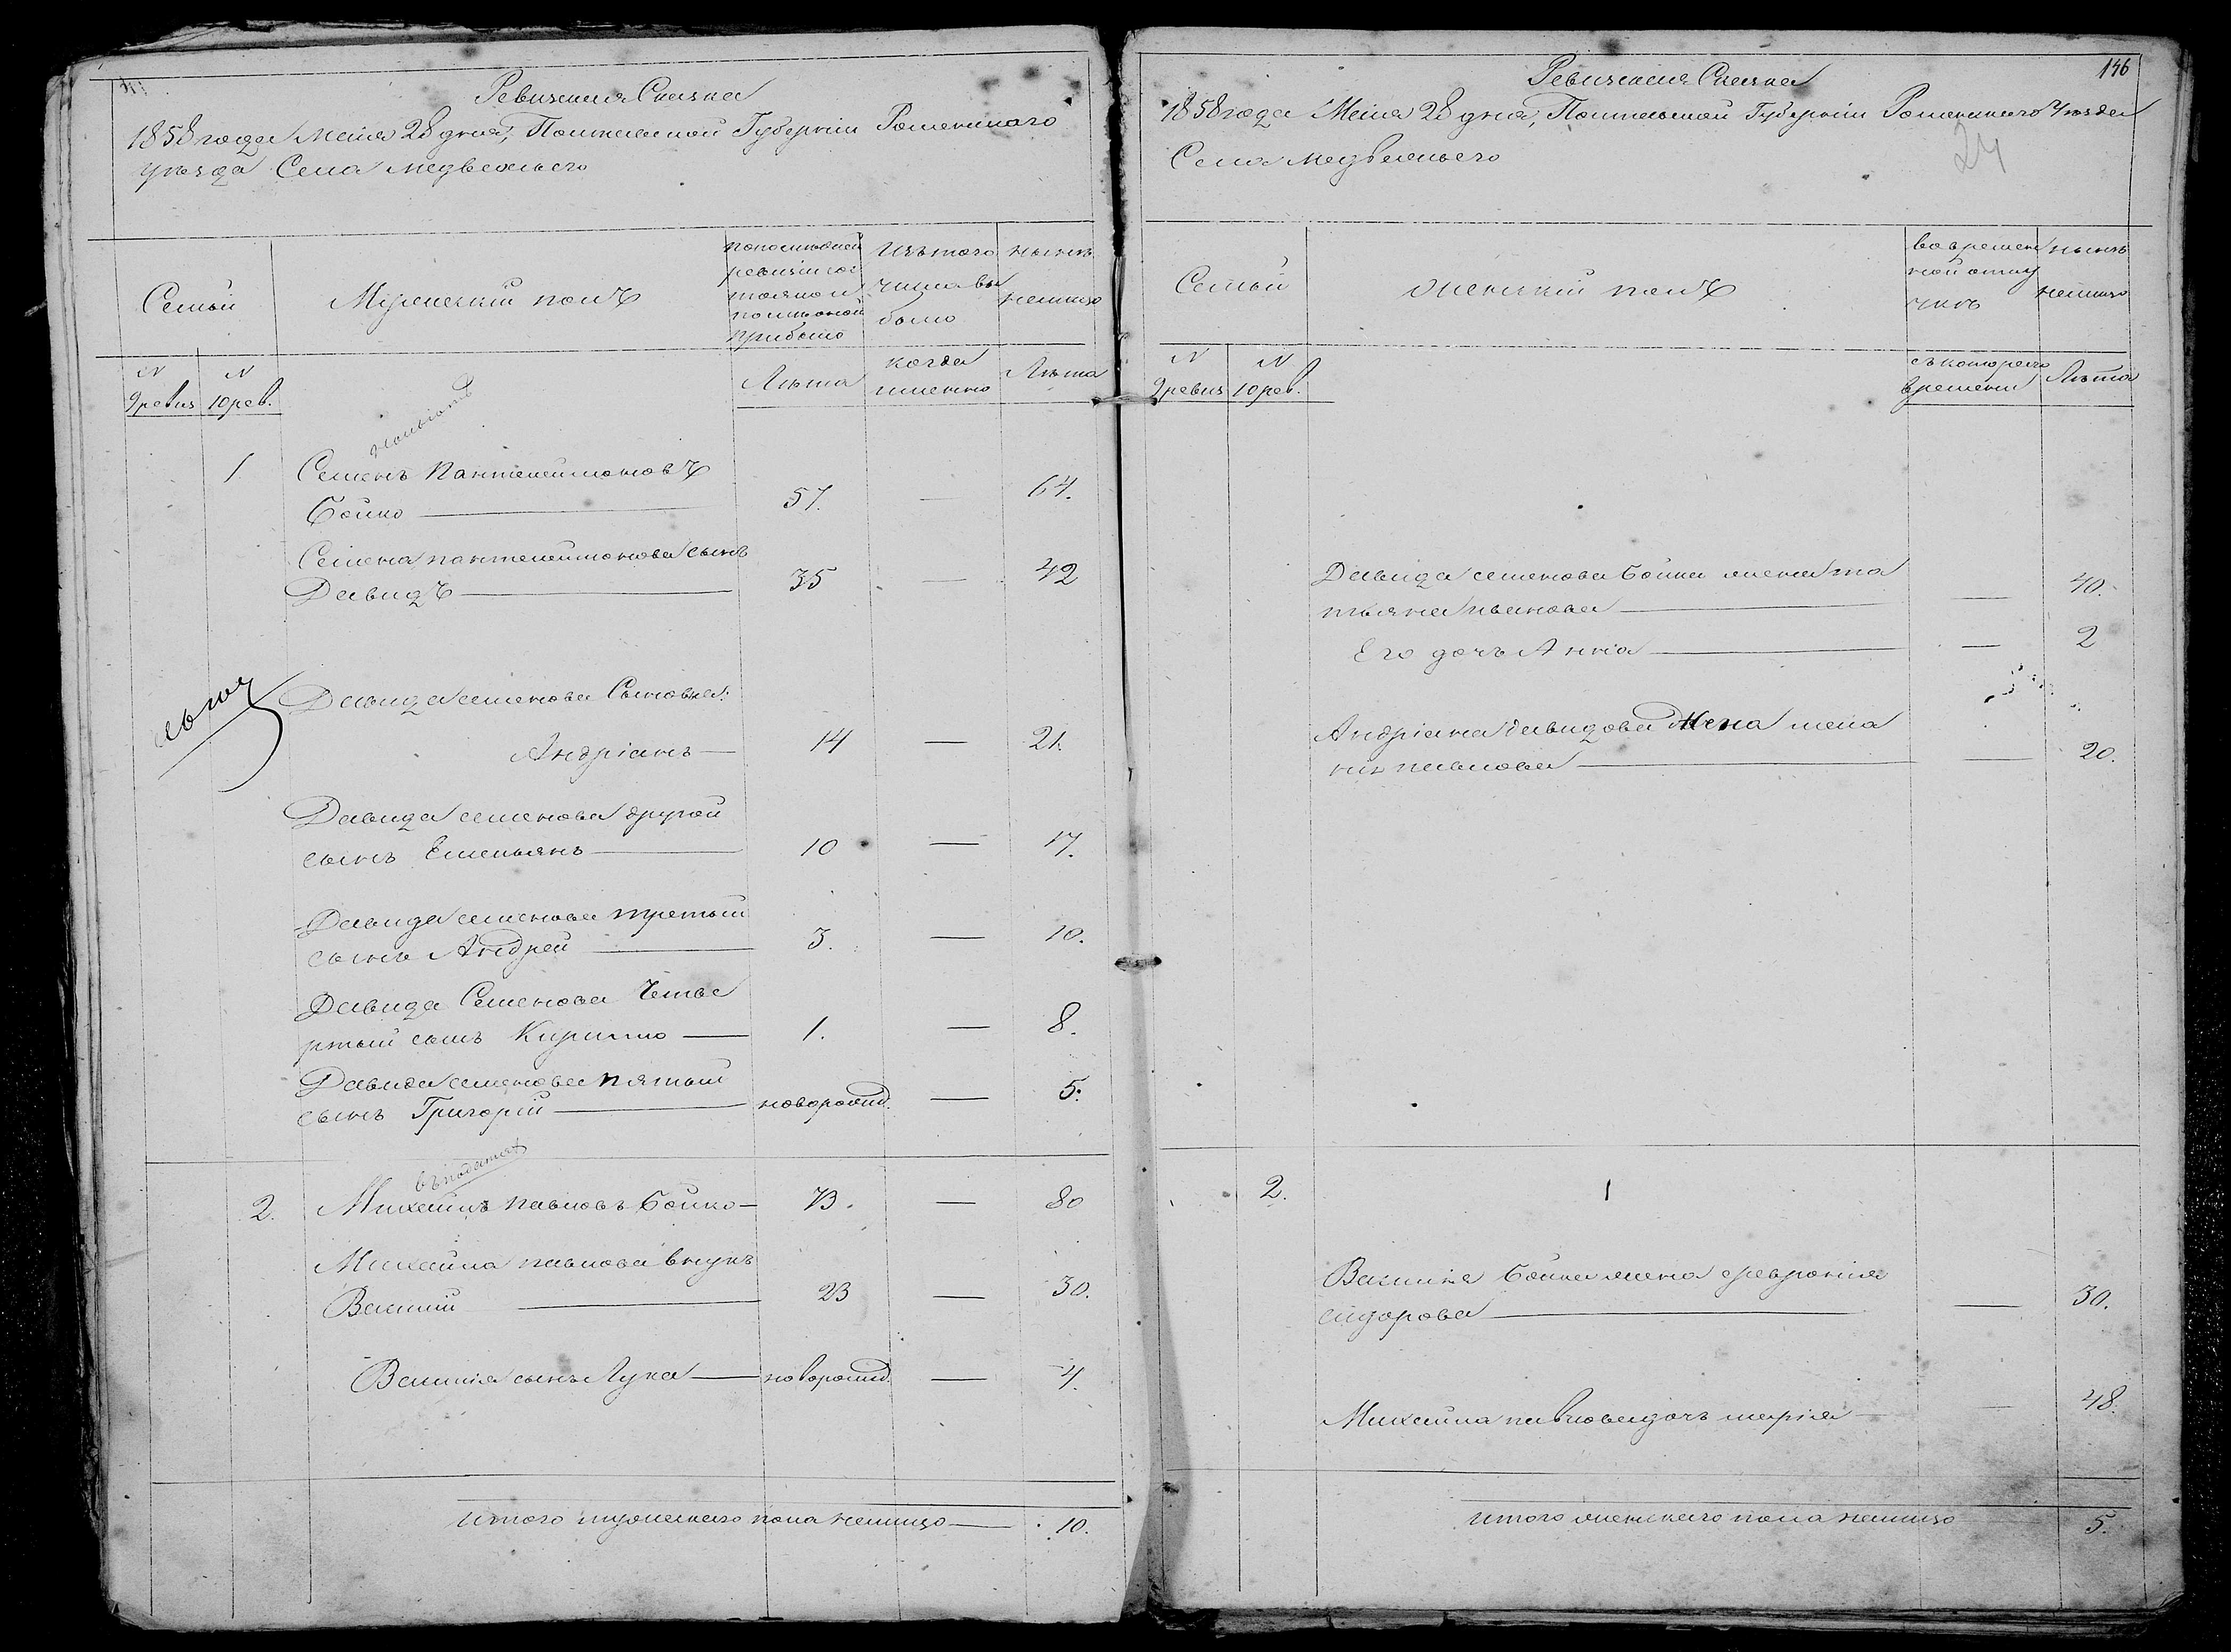 Ревизская Сказка
1858 года Маія 28 дня, Полтавской Губерніи Роменскаго
уѣзда Села медвежьего
Семьи
Мужескій полъ
по последней ревизіи состояло и после оной прибыло
Изъ того числа выбыло
нынѣ налицо
N 9 ревиз
N 10 рев.
Лѣта
когда именно
Лѣта
1
Семенъ Пантелеимоновъ
Бойко — 57. — 64.
Семена пантелеимонова сынъ
Давидъ — 35 — 42
Давида семенова Сыновья:
Андріанъ — 14 — 21.
Давида семенова другой
сынъ Емельянъ — 10 — 17.
Давида семенова третьій
сынъ Андрей — 3. — 10.
Давида Семенова Четве
ртый сынъ Кирилло — 1. — 8.
Давида семенова пятый
сынъ Григорій — новорожд. — 5.
въ подачах
2. Михаилъ павловъ Бойко — 73. — 80
Михайла павлова внукъ
Василій — 23 — 30.
Василія сынъ Лука — новорожд. — 4.
итого мужескаго пола налицо — 10.
146
Ревизская Сказка
1858 года Маіа 28 дня, Полтавской Губерніи Роменскаго Уѣзда
Села Медвежьего
24
Семьи
женскій полъ
во временной отлучкѣ
нынѣ налицо
N 9 ревиз
N 10 рев.
съ котораго времени
Лѣта
Давида семенова Бойка жена та
тьяна иванова — — 40.
Его дочь Анна — — 2
Андріана давидова Жена мела
нія павлова — — 20.
2.
Василія Бойка жена Февронія
сидорова — — 30.
Михаила павлова дочь марія — — 48.
итого женскаго пола налицо 5.